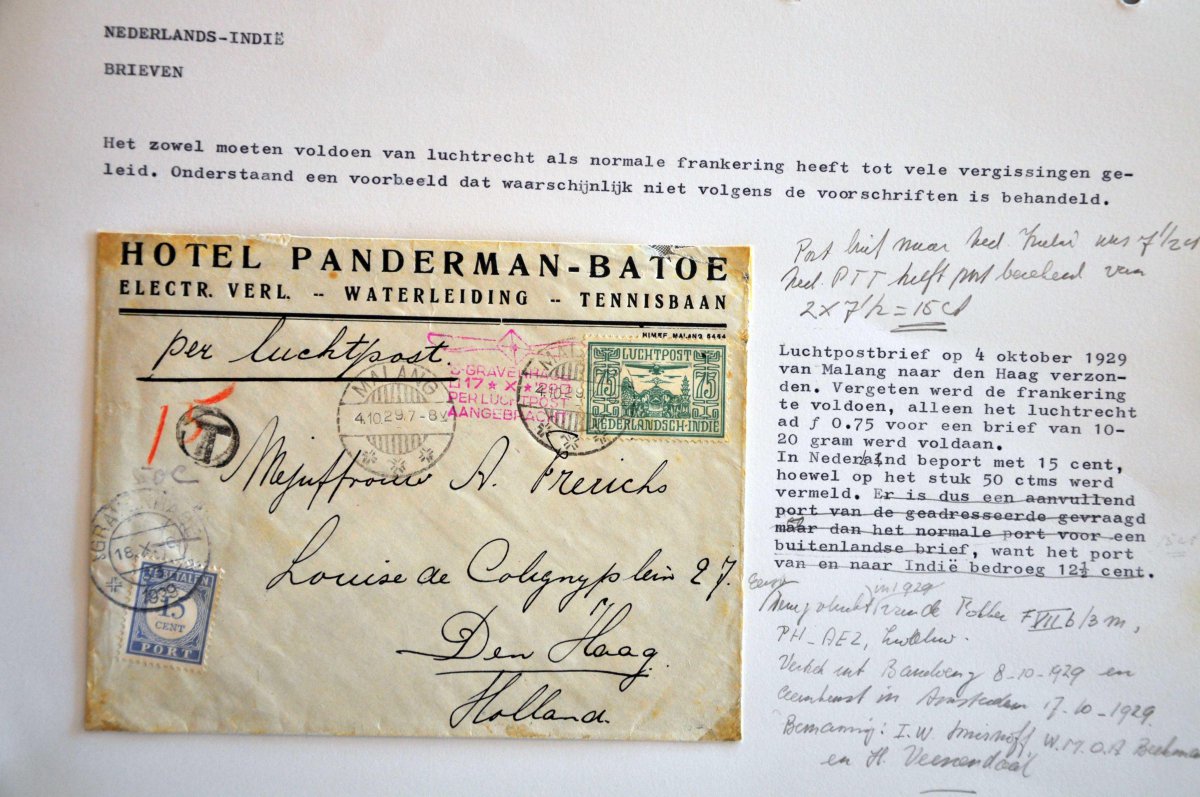 NEDERLANDS-INDIË
BRIEVEN
Het zowel moeten voldoen van luchtrecht als normale frankering heeft tot vele vergissingen ge-
leid. Onderstaand een voorbeeld dat waarschijnlijk niet volgens de voorschriften is behandeld.
HOTEL PANDERMAN-BATOE
ELECTR. VERL. -- WATERLEIDING -- TENNISBAAN
HIMEF MALANG 5464
per luchtpost.
'S-GRAVENHAGE
17 * X * 29
PER LUCHTPOST
AANGEBRACHT
MALANG
4.10.29.7-8V
LUCHTPOST
75 75
NEDERLANDSCH-INDIE
15
T
50c
Mejuffrouw A. Frerichs
Louise de Colignyplein 27.
Den Haag.
Holland.
'SGRAVENHAGE
18.X
1939
TE BETALEN
15
CENT
PORT
Port brief naar Ned Indië was 7 1/2 ct
Ned. PTT heeft port berekend van
2 x 7 1/2 = 15 ct
Luchtpostbrief op 4 oktober 1929
van Malang naar den Haag verzon-
den. Vergeten werd de frankering
te voldoen, alleen het luchtrecht
ad ƒ 0.75 voor een brief van 10-
20 gram werd voldaan.
In Nederland beport met 15 cent,
hoewel op het stuk 50 ctms werd
vermeld. Er is dus een aanvullend
port van de geadresseerde gevraagd
maar dan het normale port voor een
buitenlandse brief, want het port
van en naar Indië bedroeg 12½ cent.
15 ct
in 1929
van de Fokker F VII b/3 m,
PH-AEZ,
Bandoeng 8-10-1929 en
in Amsterdam 17-10-1929.
Bemanning: I.W. Smirnoff, W.M.O.A. Beekman
en H. Veenendaal